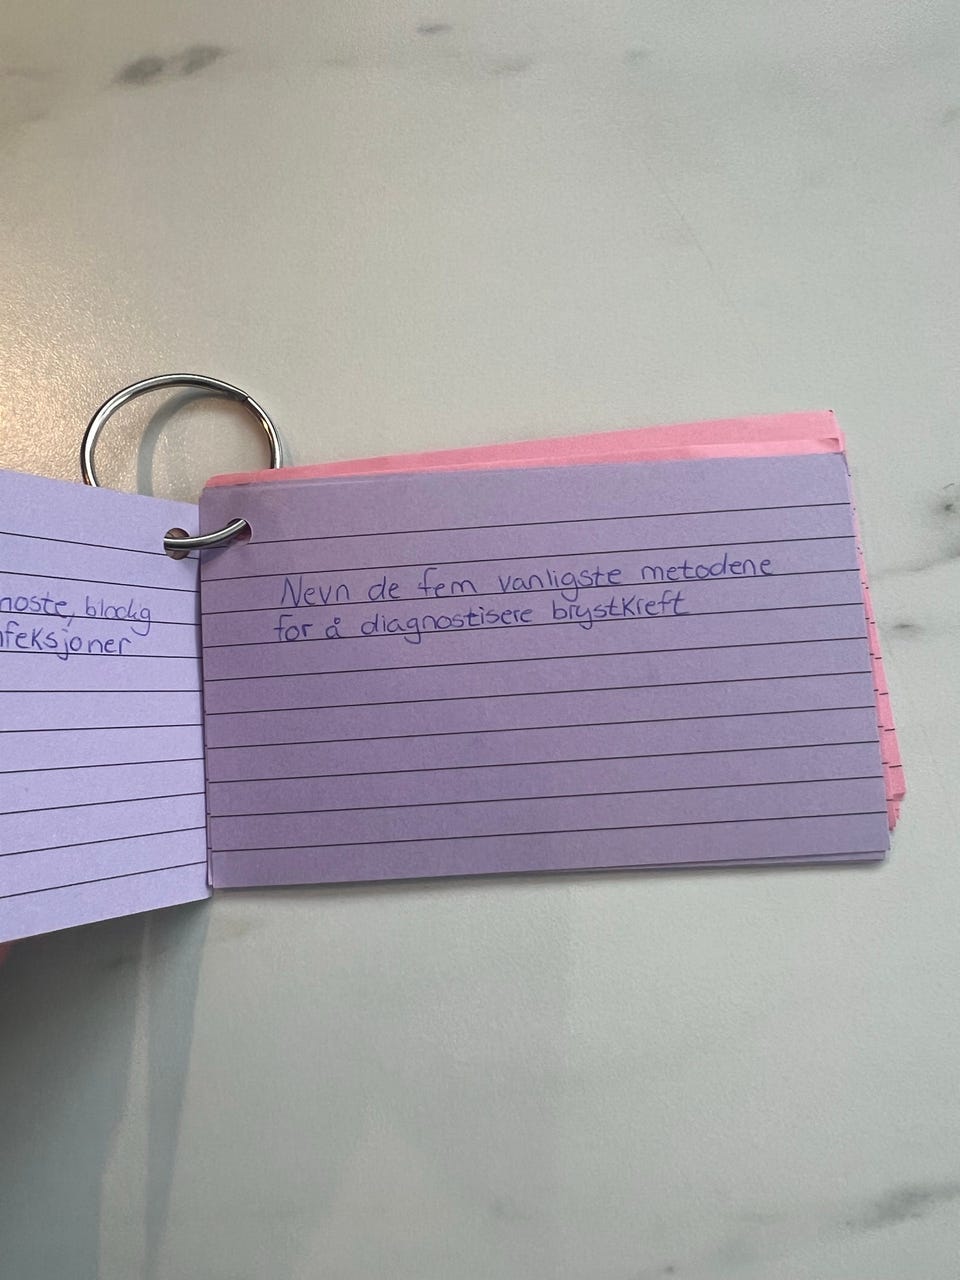 hoste, blodig
nfeksjoner
Nevn de fem vanligste metodene
for å diagnostisere brystkreft